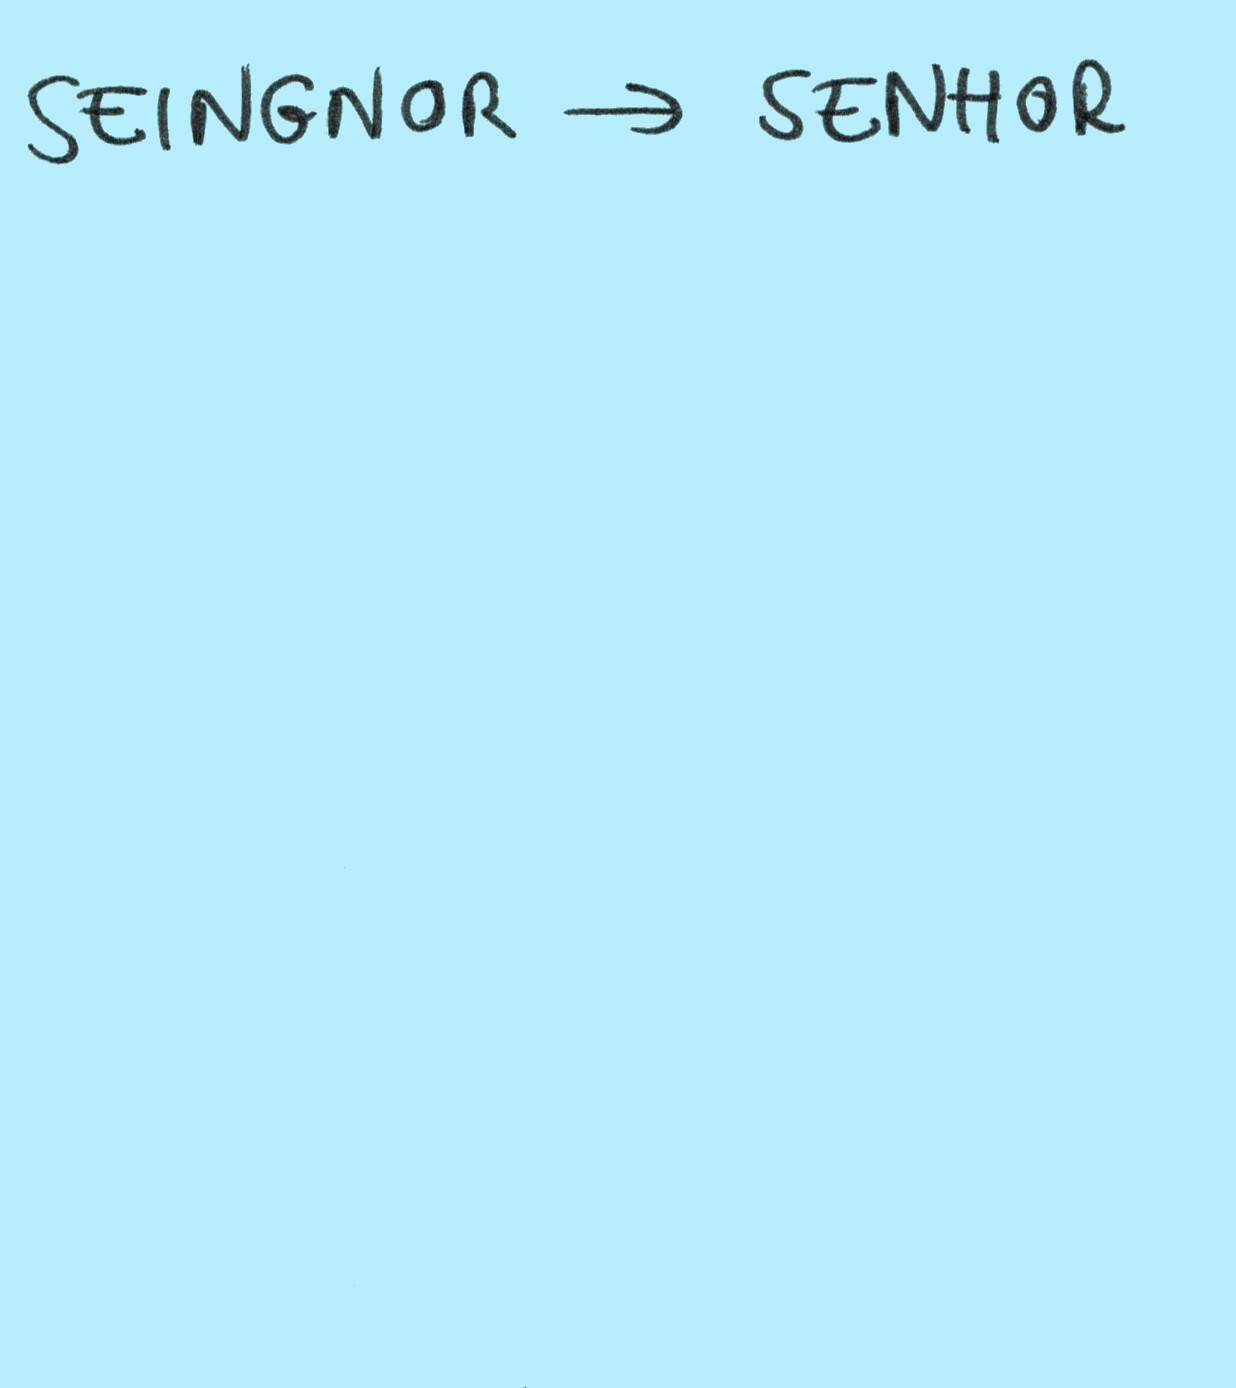 SEINGNOR → SENHOR